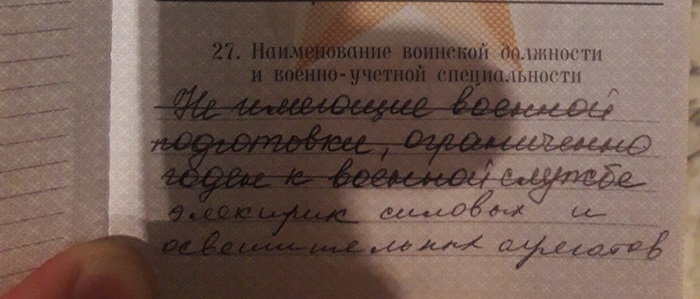 27. Наименование воинской должности
и военно-учетной специальности
Не имеющие военной
подготовки, ограниченно
годен к военной службе
электрик силовых и
осветительных